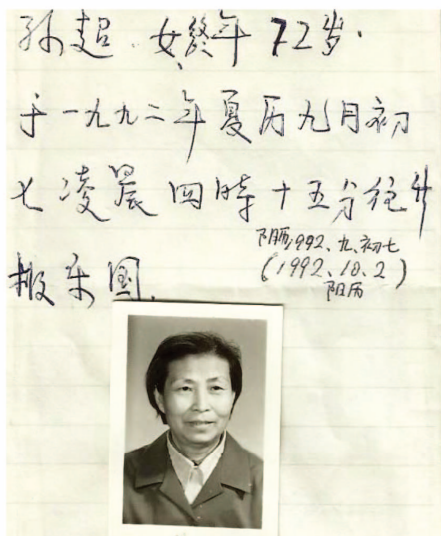 孙超.女终年72岁.
于一九九二年夏历九月初
七凌晨四時十五分往生
极乐国.
阴历1992、九、初七
(1992、10、2)
阳历